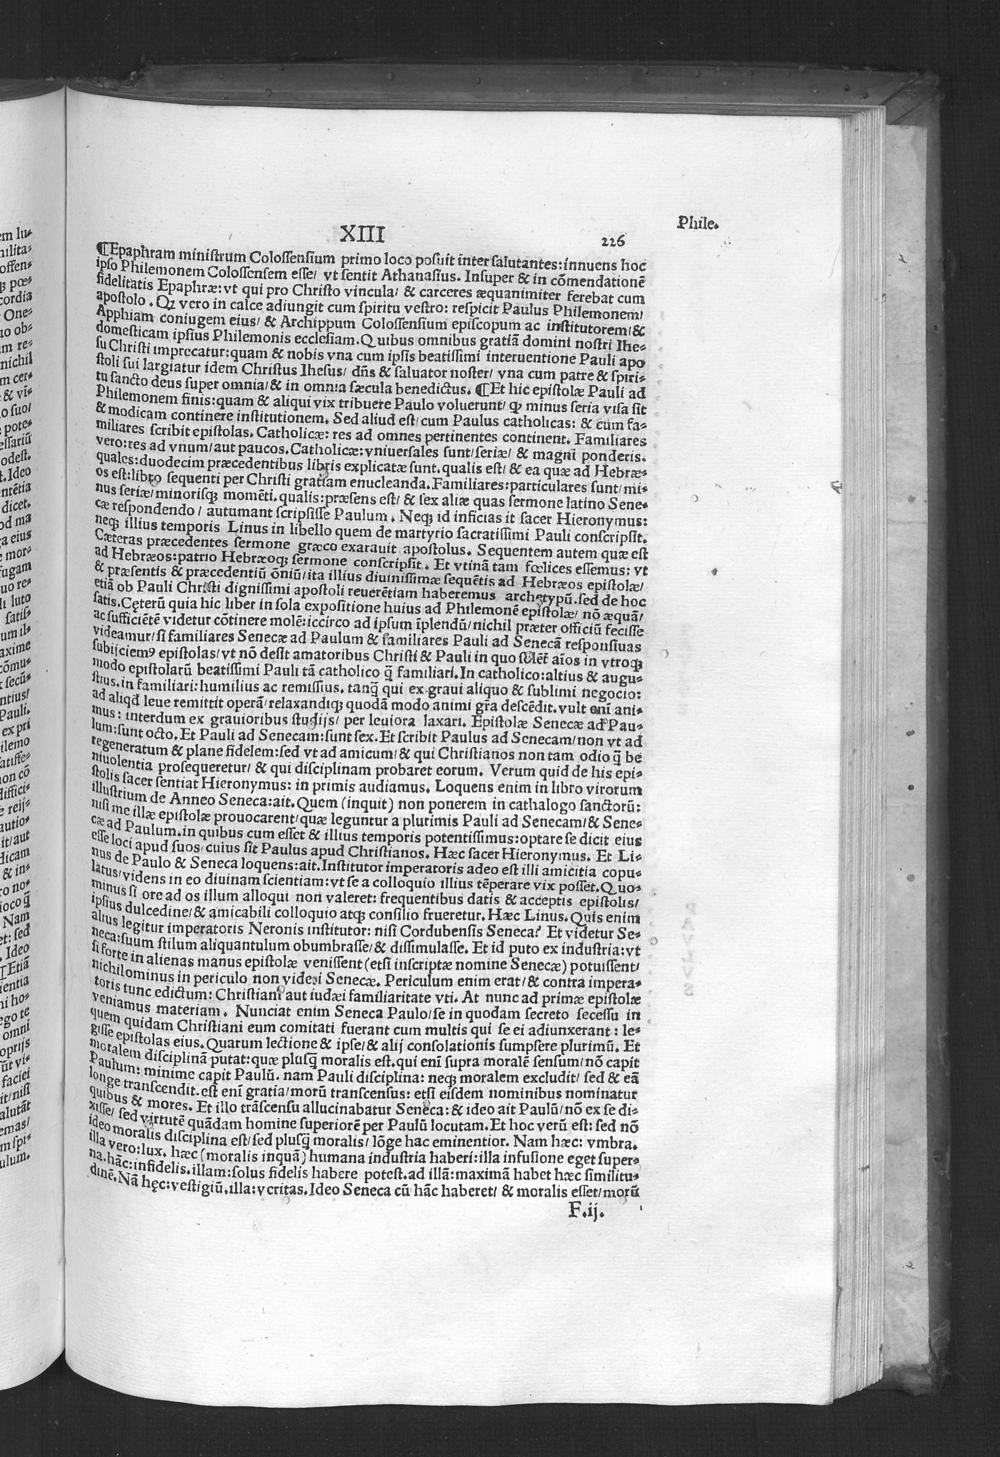 XIII
226
Phile.
¶Epaphram ministrum Colossensium primo loco posuit inter salutantes: innuens hoc
ipso Philemonem Colossensem esse/ vt sentit Athanasius. Insuper & in cōmendationē
fidelitatis Epaphræ: vt qui pro Christo vincula/ & carceres æquanimiter ferebat cum
apostolo. Qꝫ vero in calce adiungit cum spiritu vestro: respicit Paulus Philemonem/
Apphiam coniugem eius/ & Archippum Colossensium episcopum ac institutorem/ &
domesticam ipsius Philemonis ecclesiam. Quibus omnibus gratiā domini nostri Ihe-
su Christi imprecatur: quam & nobis vna cum ipsis beatissimi interuentione Pauli apo
stoli sui largiatur idem Christus Ihesus/ dñs & saluator noster/ vna cum patre & spiri-
tu sancto deus super omnia/ & in omnia sæcula benedictus. ¶Et hic epistolæ Pauli ad
Philemonem finis: quam & aliqui vix tribuere Paulo voluerunt/ ꝙ minus seria visa sit
& modicam continere institutionem. Sed aliud est/ cum Paulus catholicas: & cum fa-
miliares scribit epistolas. Catholicæ: res ad omnes pertinentes continent. Familiares
vero: res ad vnum/ aut paucos. Catholicæ: vniuersales sunt/ seriæ/ & magni ponderis.
quales: duodecim præcedentibus libris explicatæ sunt. qualis est/ & ea quæ ad Hebræ-
os est: libro sequenti per Christi gratiam enucleanda. Familiares: particulares sunt/ mi-
nus seriæ/ minorisqꝫ momēti. qualis: præsens est/ & sex aliæ quas sermone latino Sene-
cæ respondendo/ autumant scripsisse Paulum. Neqꝫ id inficias it sacer Hieronymus:
neqꝫ illius temporis Linus in libello quem de martyrio sacratissimi Pauli conscripsit.
Cæteras præcedentes sermone græco exarauit apostolus. Sequentem autem quæ est
ad Hebræos: patrio Hebræoqꝫ sermone conscripsit. Et vtinā tam fœlices essemus: vt
& præsentis & præcedentiū oñiū/ ita illius diuinissimæ sequētis ad Hebræos epistolæ/
etiā ob Pauli Christi dignissimi apostoli reuerētiam haberemus archetypū. sed de hoc
satis. Cęterū quia hic liber in sola expositione huius ad Philemonē epistolæ/ nō æquā/
ac sufficiētē videtur cōtinere molē: iccirco ad ipsum īplendū/ nichil præter officiū fecisse
videamur/ si familiares Senecæ ad Paulum & familiares Pauli ad Senecā responsiuas
subijciemꝰ epistolas/ vt nō desīt amatoribus Christi & Pauli in quo solēt aīos in vtroqꝫ
modo epistolarū beatissimi Pauli tā catholico q̄ familiari. In catholico: altius & augu-
stius. in familiari: humilius ac remissius. tanq̄ qui ex graui aliquo & sublimi negocio:
ad aliqd leue remittit operā/ relaxandiqꝫ quodā modo animi gr̄a descēdit. vult eni ani-
mus: interdum ex grauioribus studijs/ per leuiora laxari. Epistolæ Senecæ ad Pau-
lum: sunt octo. Et Pauli ad Senecam: sunt sex. Et scribit Paulus ad Senecam/ non vt ad
regeneratum & plane fidelem: sed vt ad amicum/ & qui Christianos non tam odio q̄ be
niuolentia prosequeretur/ & qui disciplinam probaret eorum. Verum quid de his epi-
stolis sacer sentiat Hieronymus: in primis audiamus. Loquens enim in libro virorum
illustrium de Anneo Seneca: ait. Quem (inquit) non ponerem in cathalogo sanctorū:
nisi me illæ epistolæ prouocarent/ quæ leguntur a plurimis Pauli ad Senecam/ & Sene-
cæ ad Paulum. in quibus cum esset & illius temporis potentissimus: optare se dicit eius
esse loci apud suos/ cuius sit Paulus apud Christianos. Hæc sacer Hieronymus. Et Li-
nus de Paulo & Seneca loquens: ait. Institutor imperatoris adeo est illi amicitia copu-
latus/ videns in eo diuinam scientiam: vt se a colloquio illius tēperare vix posset. Quo-
minus si ore ad os illum alloqui non valeret: frequentibus datis & acceptis epistolis/
ipsius dulcedine/ & amicabili colloquio atqꝫ consilio frueretur. Hæc Linus. Quis enim
alius legitur imperatoris Neronis institutor: nisi Cordubensis Seneca? Et videtur Se-
neca: suum stilum aliquantulum obumbrasse/ & dissimulasse. Et id puto ex industria: vt
si forte in alienas manus epistolæ venissent (etsi inscriptæ nomine Senecæ) potuissent/
nichilominus in periculo non videri Senecæ. Periculum enim erat/ & contra impera-
toris tunc edictum: Christiani aut iudæi familiaritate vti. At nunc ad primæ epistolæ
veniamus materiam. Nunciat enim Seneca Paulo/ se in quodam secreto secessu in
quem quidam Christiani eum comitati fuerant cum multis qui se ei adiunxerant: le-
gisse epistolas eius. Quarum lectione & ipse/ & alij consolationis sumpsere plurimū. Et
moralem disciplinā putat: quæ plusq̄ moralis est. qui eni supra moralē sensum/ nō capit
Paulum: minime capit Paulū. nam Pauli disciplina: neqꝫ moralem excludit/ sed & eā
longe transcendit. est eni gratia/ morū transcensus: etsi eisdem nominibus nominatur
quibus & mores. Et illo trāscensu allucinabatur Seneca: & ideo ait Paulū/ nō ex se di-
xisse/ sed virtutē quādam homine superiorē per Paulū locutam. Et hoc verū est: sed nō
ideo moralis disciplina est/ sed plusq̄ moralis/ lōge hac eminentior. Nam hæc: vmbra.
illa vero: lux. hæc (moralis inquā) humana industria haberi: illa infusione eget super-
na. hāc: infidelis. illam: solus fidelis habere potest. ad illā: maximā habet hæc similitu-
dinē. Nā hęc: vestigiū. illa: veritas. Ideo Seneca cū hāc haberet/ & moralis esset/ morū
F.ij.